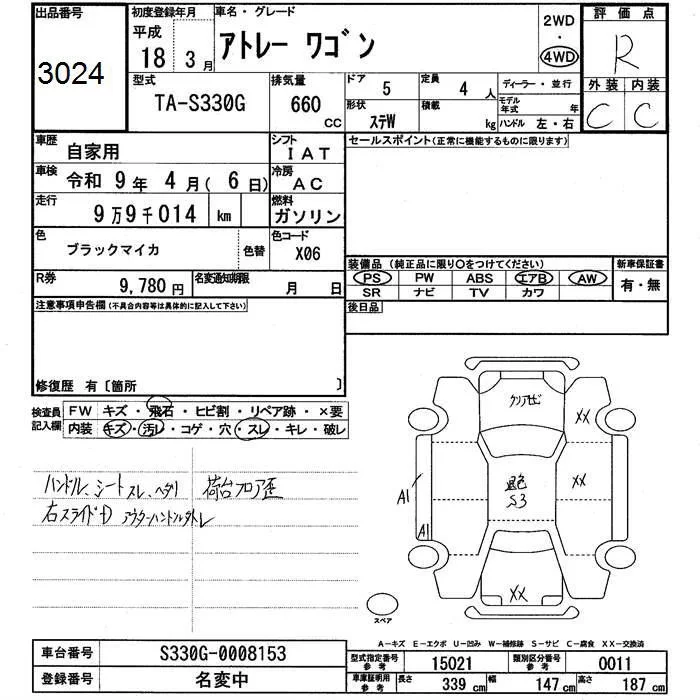 出品番号
3024
初度登録年月
平成
18 3月
車名・グレード
アトレー ワゴン
2WD
・
4WD
評価点
R
外装 内装
C C
型式
TA-S330G
排気量
660
CC
ドア
5
定員
4 人
形状
ステW
積載
kg
ディーラー・並行
モデル年式 年
ハンドル 左・右
車歴
自家用
シフト
IAT
車検
令和 9年 4月( 6日)
冷房
AC
走行
9万9千014 km
燃料
ガソリン
色
ブラックマイカ
色替
色コード
X06
R券
9,780円
名変通知期限
月 日
セールスポイント(正常に機能するものに限ります)
装備品 (純正品に限り○をつけてください)
PS PW ABS エアB AW
SR ナビ TV カワ
新車保証書
有・無
後日品
注意事項申告欄(不具合内容等は具体的に記入して下さい)
修復歴 有〔箇所 〕
検査員記入欄
FW キズ・飛石・ヒビ割・リペア跡・×要
内装 キズ・汚レ・コゲ・穴・スレ・キレ・破レ
ハンドル、シート スレ、ヘタリ
荷台フロア歪
右スライドD アウターハンドル外レ
クリアハゲ
XX
XX
退色
S3
A1
A1
XX
スペア
A-キズ E-エクボ U-凹み W-補修跡 S-サビ C-腐食 XX-交換済
車台番号
S330G-0008153
登録番号
名変中
型式指定番号
参考
15021
類別区分番号
参考
0011
車庫証明用
参考
長さ 339 cm
幅 147 cm
高さ 187 cm